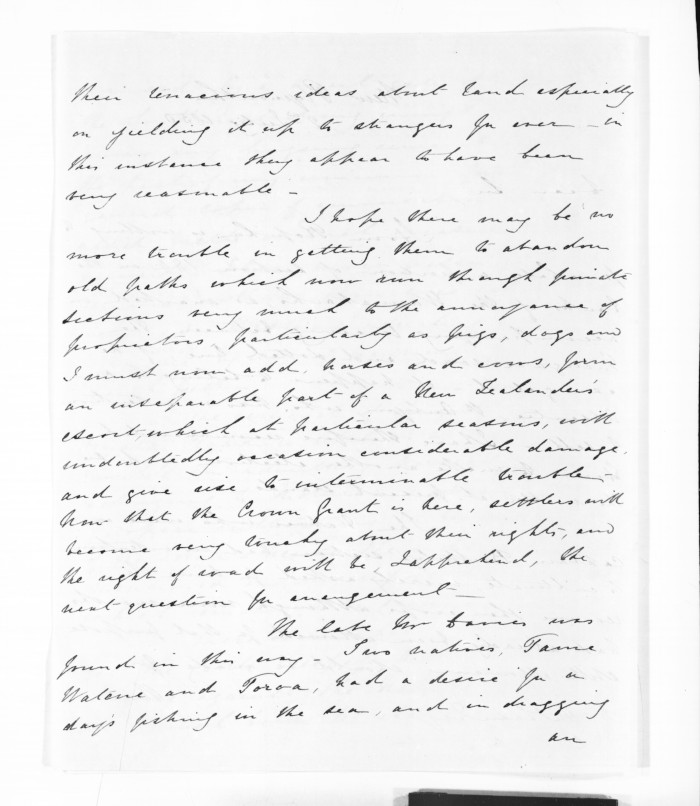 their tenacious ideas about land especially
on yielding it up to strangers for ever - in
this instance they appear to have been
very reasonable -
I hope there may be no
more trouble in getting them to abandon
old paths which now run through private
sections very much to the annoyance of
proprietors particularly as pigs, dogs and
I must now add, horses and cows, form
an inseparable part of a New Zealander's
escort, which at particular seasons, will
undoubtedly occasion considerable damage,
and give rise to interminable trouble -
Now that the Crown Grant is here, settlers will
become very touchy about their rights, and
the right of road will be, I apprehend, the
next question for arrangement -
The late Mr Davies was
found in this way - Two natives, Tame
and Toroa, had a desire for a
days fishing in the sea, and in dragging
an